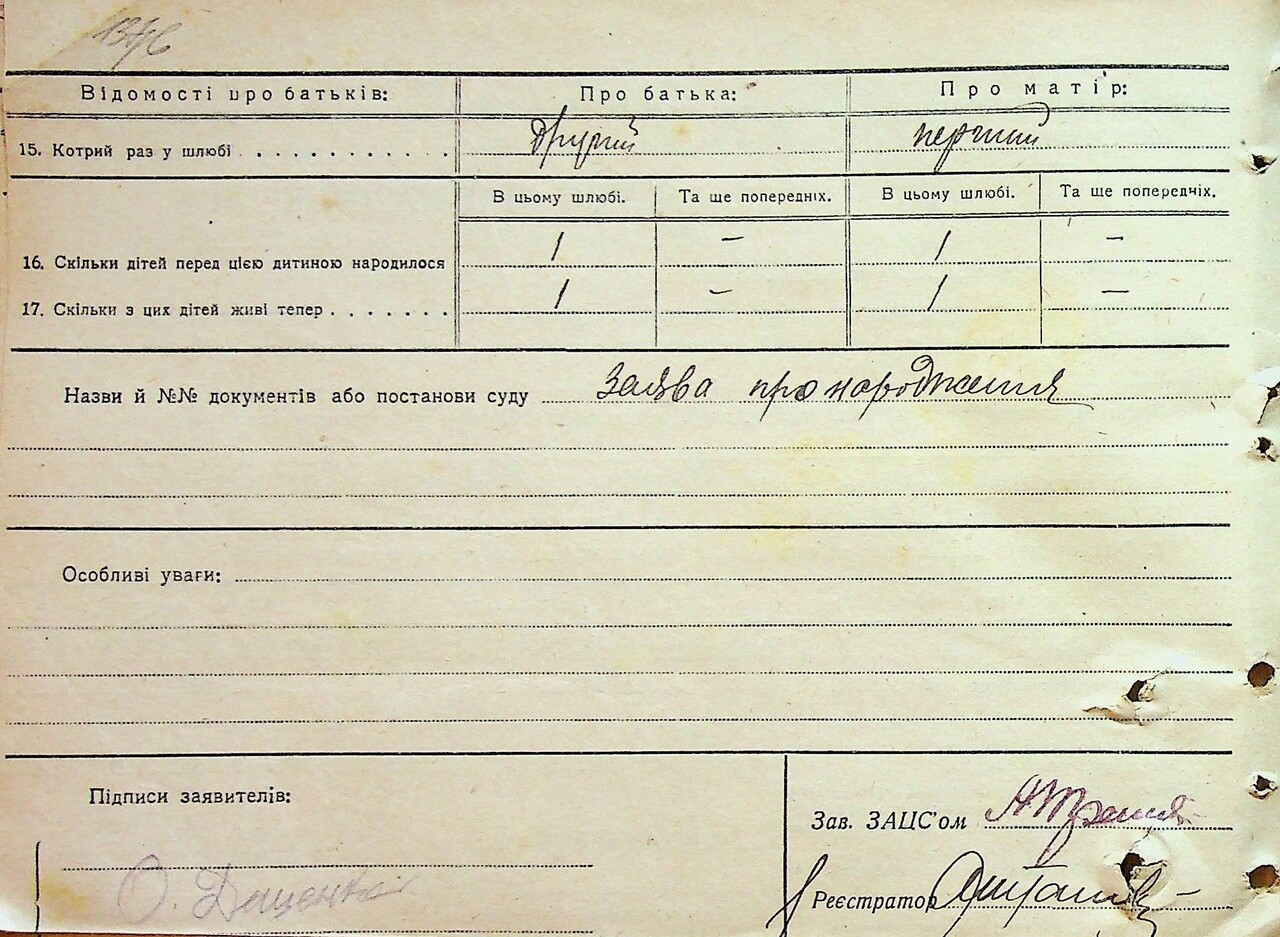 Відомості про батьків: Про батька: Про матір:
15. Котрий раз у шлюбі . . . . . . . . . . . другий перший
В цьому шлюбі. Та ще попередніх. В цьому шлюбі. Та ще попередніх.
16. Скільки дітей перед цією дитиною народилося 1 — 1 —
17. Скільки з цих дітей живі тепер . . . . . . . 1 — 1 —
Назви й №№ документів або постанови суду Заява про народження
Особливі уваги:
Підписи заявителів:
Зав. ЗАЦС'ом
О. Даценко
Реєстратор